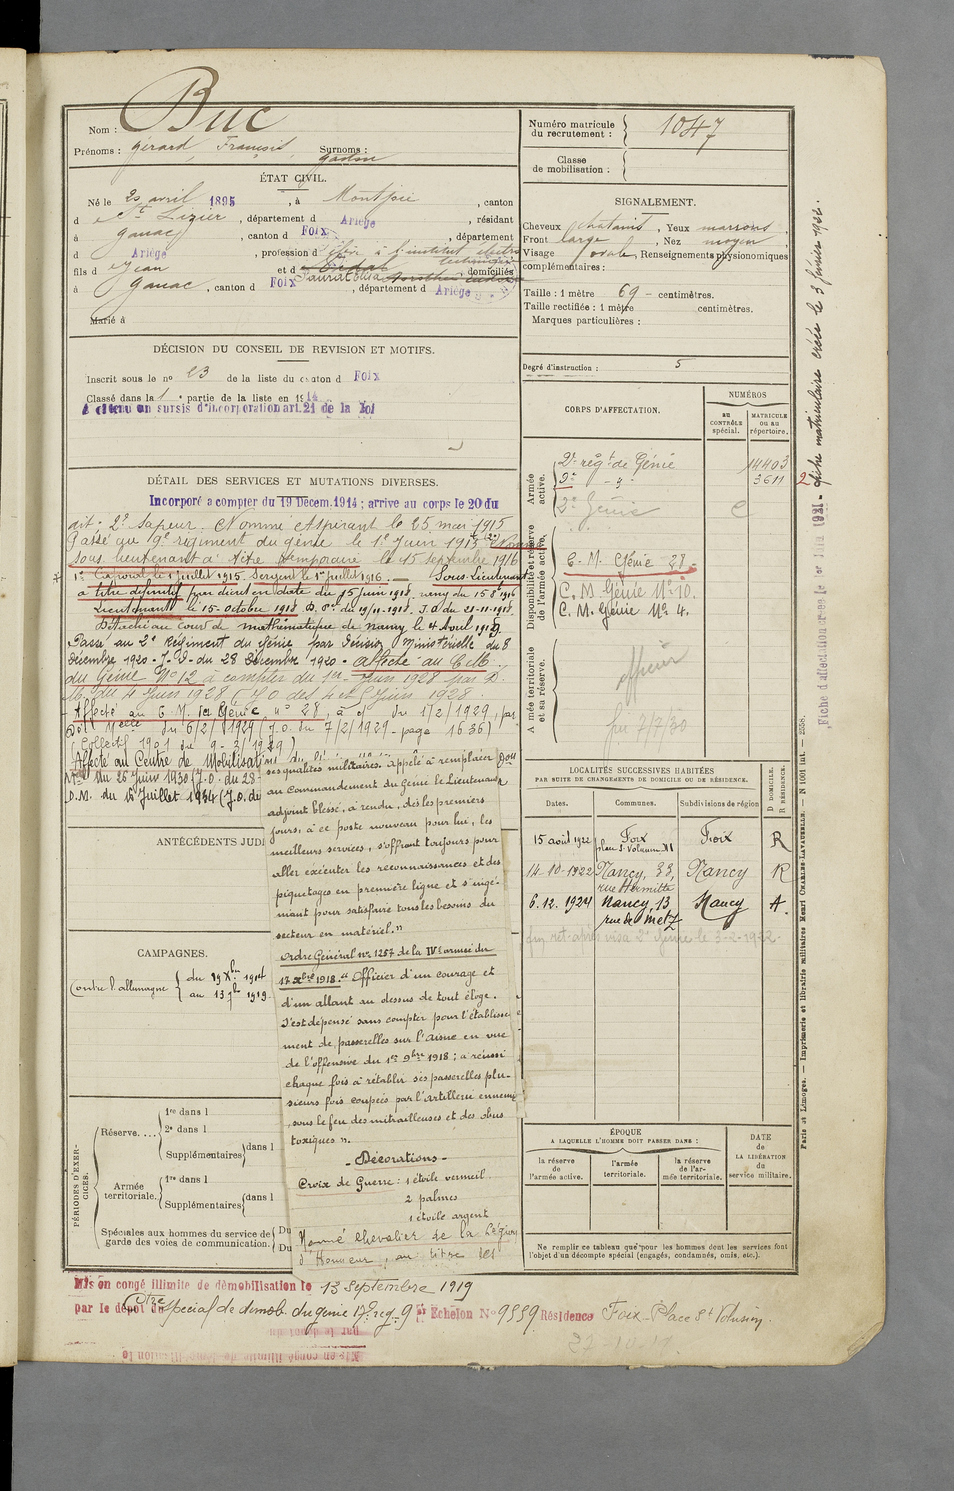 Nom : Buc
Prénoms : Gérard, François, Surnoms : Gaston
ÉTAT CIVIL.
Né le 20 avril 1895, à Montjoie, canton
d e St Lizier, département d Ariège, résidant
à Ganac, canton d Foix, département
d Ariège, profession d'élève à l'institut électro
technique
fils d e Jean et d domiciliés
à Ganac, canton d Foix, département d Ariège
Marié à
DÉCISION DU CONSEIL DE REVISION ET MOTIFS.
Inscrit sous le no 23 de la liste du canton d Foix
Classé dans la 1e partie de la liste en 1914
A obtenu un sursis d'incorporation art. 21 de la loi
DÉTAIL DES SERVICES ET MUTATIONS DIVERSES.
Incorporé a compter du 19 Décem. 1914 ; arrive au corps le 20 du
dit. 2e Sapeur. Nommé Aspirant le 25 mai 1915
Passé au 9e régiment du génie le 1er Juin 1915 Nommé
sous lieutenant à titre temporaire le 15 septembre 1916
1° Caporal le 1 juillet 1915. Sergent le 1er juillet 1916. Sous-Lieutenant
à titre définitif par décret en date du 15 juin 1918, rang du 15 8bre 1916
Lieutenant le 15 octobre 1918 D. Pel du 19/11-1918. J.O du 21-11-1918.
Détaché au Cours de mathématique de Nancy le 4 Avril 1919
Passé au 2e Régiment du Génie par Décision Ministérielle du 8
décembre 1920 - J.O - du 28 Décembre 1920 - affecté au C.M.
du Génie No 12 à compter du 1er Juin 1928 par D.
M. du 4 Juin 1928 (J.O des 4 et 5 Juin 1928.
- Affecté au C.M. du Génie no 28, à c du 1/2/1929, par
Déc. Melle du 6/2/1929 (J.O. du 7/2/1929 - page 1636)
(Collectif 1901 du 9-2/1929)
Affecté au Centre de Mobilisation du
du 26 Juin 1930 (J.O. du 28-
D.M. du 16 Juillet 1934 (J.O. du
ses qualités militaires. Appelé à remplacer
au commandement du Génie le Lieutenant
adjoint blessé, a rendu, dès les premiers
jours, à ce poste nouveau pour lui, les
meilleurs services, s'offrant toujours pour
aller exécuter les reconnaissances et des
piquetages en première ligne et s'ingé-
niant pour satisfaire tous les besoins du
secteur en matériel."
Ordre Général no 1257 de la IVe armée du
17 xbre 1918. "Officier d'un courage et
d'un allant au dessus de tout éloge.
S'est dépensé sans compter pour l'établisse
ment de passerelles sur l'Aisne en vue
de l'offensive du 1er 9bre 1918 ; a réussi
chaque fois à rétablir ses passerelles plu-
sieurs fois coupées par l'artillerie ennemie
, sous le feu des mitrailleuses et des obus
toxiques".
- Décorations -
Croix de Guerre : 1 étoile vermeil
2 palmes
1 étoile argent
Nommé Chevalier de la Légion
d'Honneur, au titre des
ANTÉCÉDENTS JUDI
CAMPAGNES.
Contre l'allemagne { du 19 Xbre 1914
au 13 7bre 1919.
PÉRIODES D'EXERCICES.
Réserve....
1re dans l
2e dans l
Supplémentaires dans l
Armée territoriale.
1re dans l
Supplémentaires dans l
Spéciales aux hommes du service de
garde des voies de communication.
Du
Du
Mis en congé illimité de démobilisation le 13 septembre 1919
par le dépôt du Ctre spécial de démob. du génie 17e reg - 9 er Echelon No 9559 Résidence Foix - Place St Volusien.
Numéro matricule
du recrutement : 1047
Classe
de mobilisation :
SIGNALEMENT.
Cheveux châtains, Yeux marrons,
Front large, Nez moyen
Visage ovale, Renseignements physionomiques
complémentaires :
Taille : 1 mètre 69 centimètres.
Taille rectifiée : 1 mètre centimètres.
Marques particulières :
Degré d'instruction : 5
CORPS D'AFFECTATION.
NUMÉROS
AU CONTRÔLE spécial.
MATRICULE OU AU répertoire.
Armée active.
2e régt de Génie 14403
9e - d° 3611
2e Génie C
Disponibilité et réserve de l'armée active.
C. M. Génie 28.
C. M. Génie No 10.
C. M. Génie No 4.
Armée territoriale et sa réserve.
officier
fm 7/7/30
LOCALITÉS SUCCESSIVES HABITÉES
PAR SUITE DE CHANGEMENTS DE DOMICILE OU DE RÉSIDENCE.
Dates. Communes. Subdivisions de région D DOMICILE. R RÉSIDENCE.
15 août 1922 Foix place St Volusien No 11 Foix R
14-10-1922 Nancy, 33, rue Hermitte Nancy R
6.12.1924 Nancy, 13 rue de Metz Nancy A.
ÉPOQUE
A LAQUELLE L'HOMME DOIT PASSER DANS :
la réserve de l'armée active.
l'armée territoriale.
la réserve de l'armée territoriale.
DATE de LA LIBÉRATION du service militaire.
Ne remplir ce tableau que pour les hommes dont les services font
l'objet d'un décompte spécial (engagés, condamnés, omis, etc.).
Fiche matriculaire créée le 3 février 1932.
Fiche d'affectation créée le 1er 1931
Paris et Limoges. — Imprimerie et librairie militaires Henri CHARLES-LAVAUZELLE. — N 1001 int. — 2558.